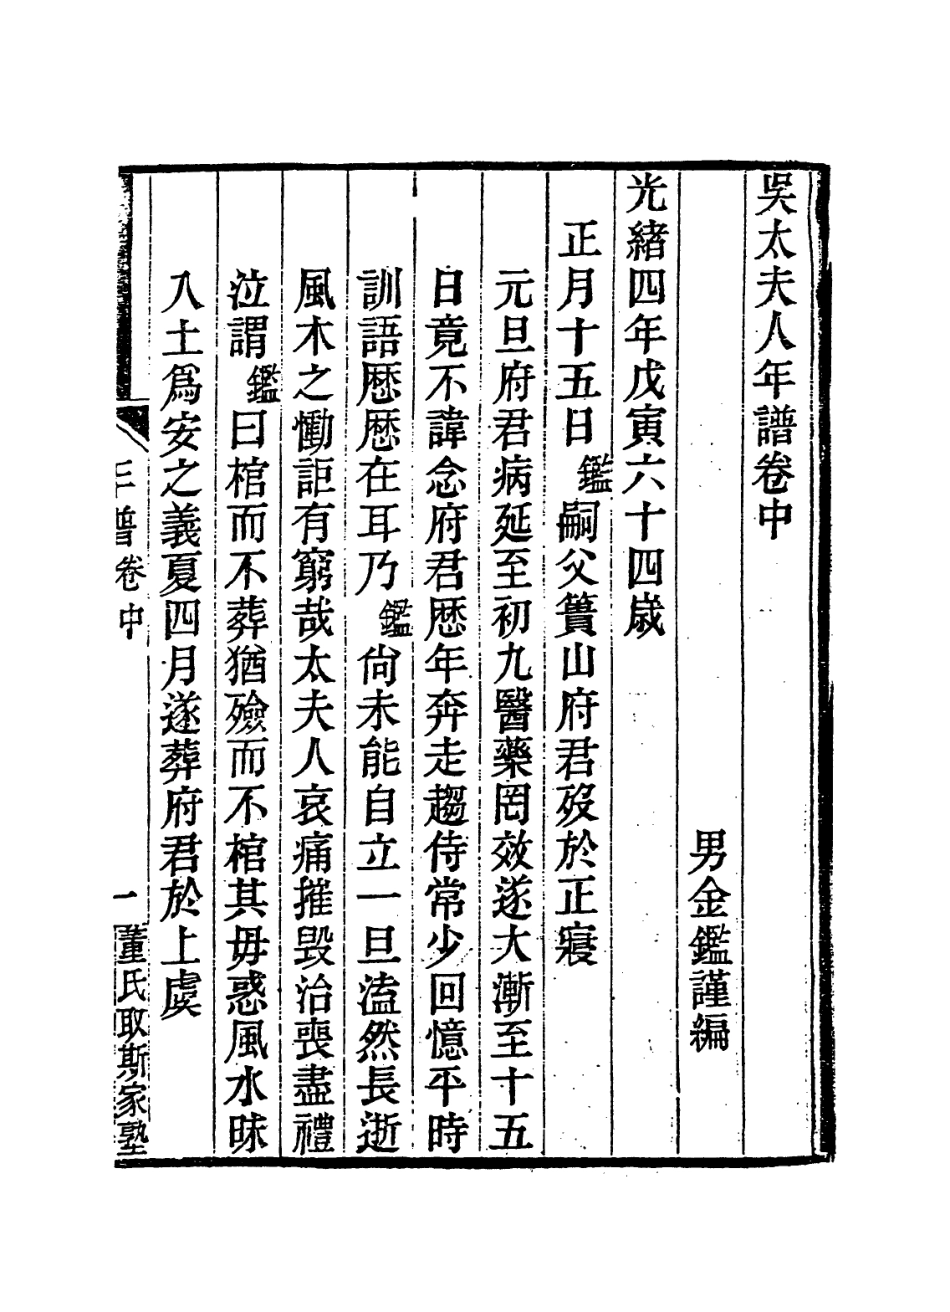 吳太夫人年譜卷中
男金鑑謹編
光緒四年戊寅六十四歲
正月十五日鑑嗣父簣山府君歿於正寢
元旦府君病延至初九醫藥罔效遂大漸至十五
日竟不諱念府君歷年奔走趨侍常少回憶平時
訓語歷歷在耳乃鑑尙未能自立一旦溘然長逝
風木之慟詎有窮哉太夫人哀痛摧毀治喪盡禮
泣謂鑑曰棺而不葬猶殮而不棺其毋惑風水昧
入土爲安之義夏四月遂葬府君於上虞
年譜卷中
一
董氏取斯家塾